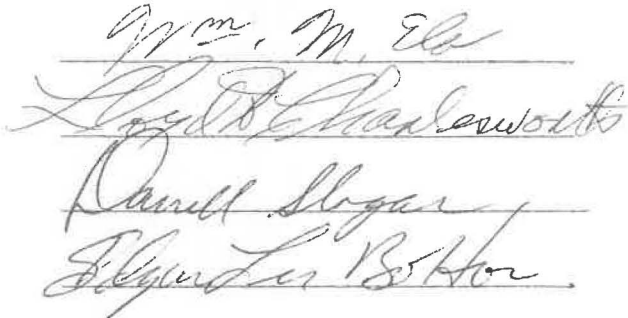 Wm. M. Ela
Lloyd D Charlesworth
Darrell Slogar
Edgar Lee Bottor